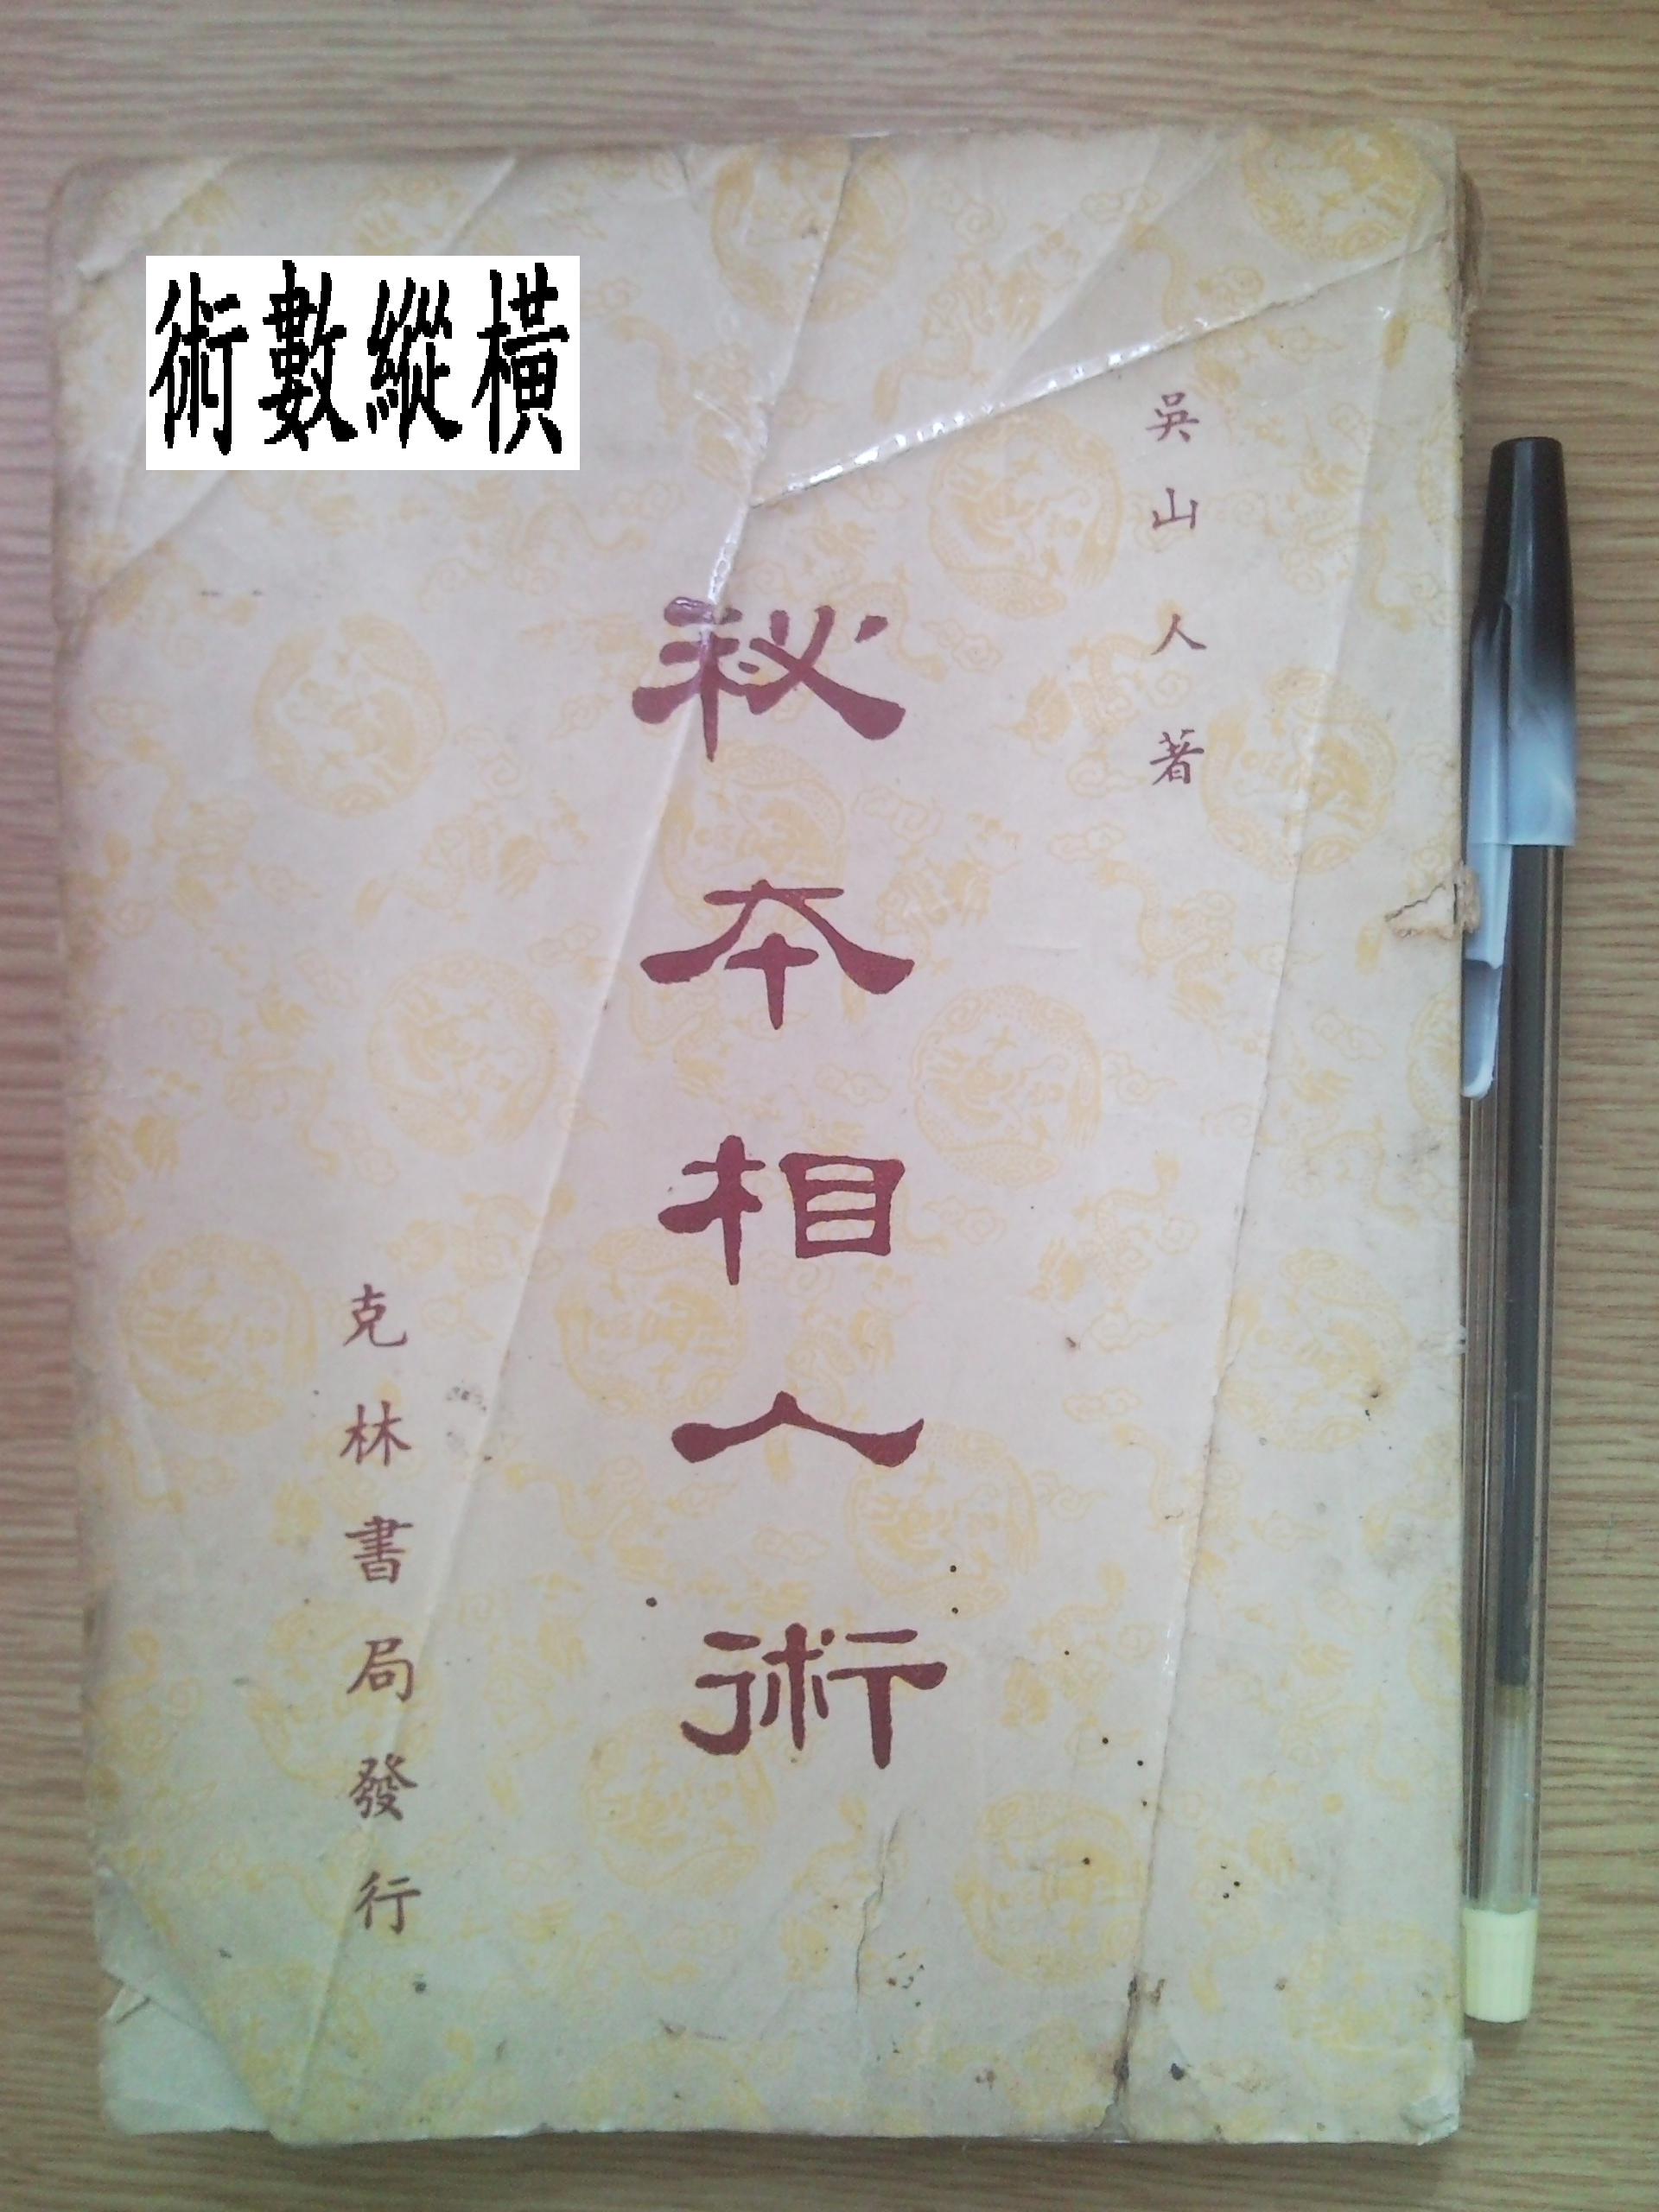 術數縱橫
吳山人著
秘本相人術
克林書局發行